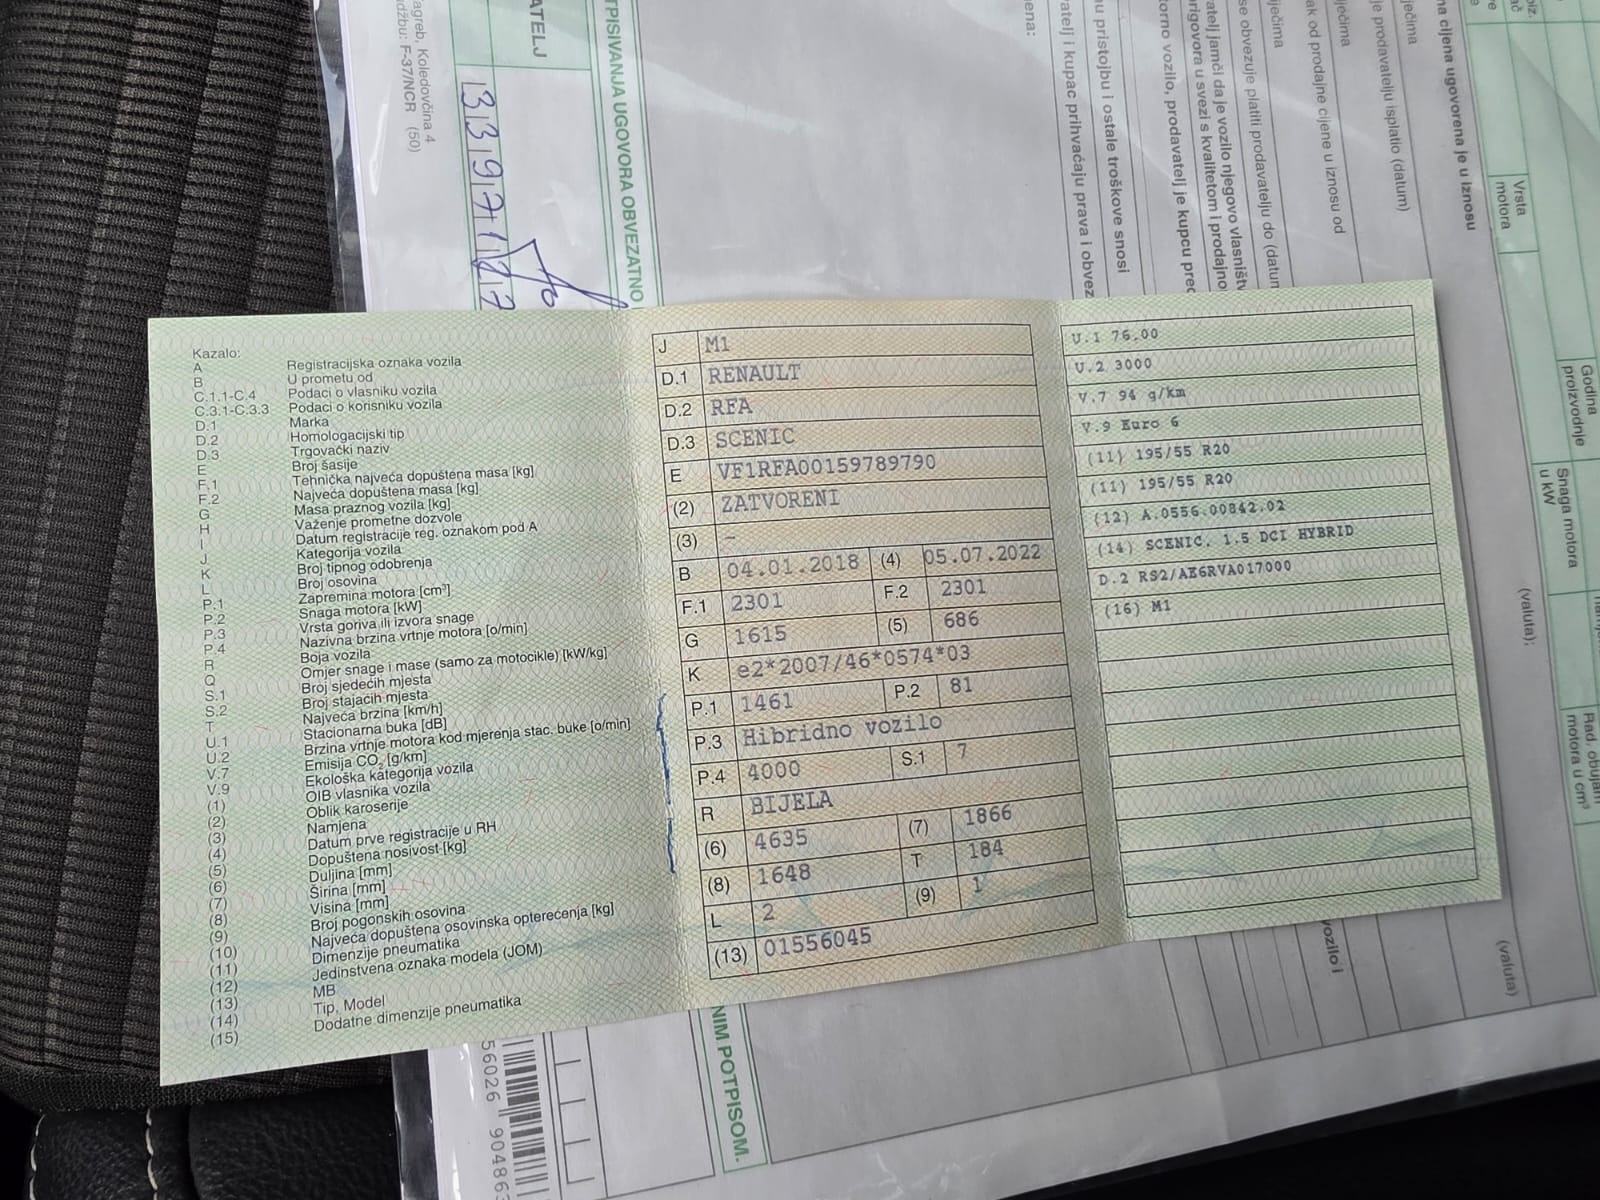 Kazalo:
A Registracijska oznaka vozila
B U prometu od
C.1.1-C.4 Podaci o vlasniku vozila
C.3.1-C.3.3 Podaci o korisniku vozila
D.1 Marka
D.2 Homologacijski tip
D.3 Trgovački naziv
E Broj šasije
F.1 Tehnička najveća dopuštena masa [kg]
F.2 Najveća dopuštena masa [kg]
G Masa praznog vozila [kg]
H Važenje prometne dozvole
I Datum registracije reg. oznakom pod A
J Kategorija vozila
K Broj tipnog odobrenja
L Broj osovina
P.1 Zapremina motora [cm³]
P.2 Snaga motora [kW]
P.3 Vrsta goriva ili izvora snage
P.4 Nazivna brzina vrtnje motora [o/min]
R Boja vozila
Q Omjer snage i mase (samo za motocikle) [kW/kg]
S.1 Broj sjedećih mjesta
S.2 Broj stajaćih mjesta
T Najveća brzina [km/h]
U.1 Stacionarna buka [dB]
U.2 Brzina vrtnje motora kod mjerenja stac. buke [o/min]
V.7 Emisija CO₂ [g/km]
V.9 Ekološka kategorija vozila
(1) OIB vlasnika vozila
(2) Oblik karoserije
(3) Namjena
(4) Datum prve registracije u RH
(5) Dopuštena nosivost [kg]
(6) Duljina [mm]
(7) Širina [mm]
(8) Visina [mm]
(9) Broj pogonskih osovina
(10) Najveća dopuštena osovinska opterećenja [kg]
(11) Dimenzije pneumatika
(12) Jedinstvena oznaka modela (JOM)
(13) MB
(14) Tip, Model
(15) Dodatne dimenzije pneumatika
J M1
D.1 RENAULT
D.2 RFA
D.3 SCENIC
E VF1RFA00159789790
(2) ZATVORENI
(3) -
B 04.01.2018 (4) 05.07.2022
F.1 2301 F.2 2301
G 1615 (5) 686
K e2*2007/46*0574*03
P.1 1461 P.2 81
P.3 Hibridno vozilo
P.4 4000 S.1 7
R BIJELA
(6) 4635 (7) 1866
(8) 1648 T 184
L 2 (9) 1
(13) 01556045
U.1 76.00
U.2 3000
V.7 94 g/km
V.9 Euro 6
(11) 195/55 R20
(11) 195/55 R20
(12) A.0556.00842.02
(14) SCENIC. 1.5 DCI HYBRID
D.2 RS2/AE6RVA017000
(16) M1
agreb, Koledovčina 4
džbu: F-37/NCR (50)
ATELJ
TPISIVANJA UGOVORA OBVEZATNO
NIM POTPISOM.
ena:
atelj i kupac prihvaćaju prava i obvez
u pristojbu i ostale troškove snosi
orno vozilo, prodavatelj je kupcu pred
rigovora u svezi s kvalitetom i prodajno
vatelj jamči da je vozilo njegovo vlasništv
se obvezuje platiti prodavatelju do (datum
ječima
ak od prodajne cijene u iznosu od
ječima
je prodavatelju isplatio (datum)
ječima
na cijena ugovorena je u iznosu
Vrsta
motora
Godina
proizvodnje
Snaga motora
u kW
Rad. obujam
motora u cm³
(valuta);
(valuta)
vozilo i
56026 904863